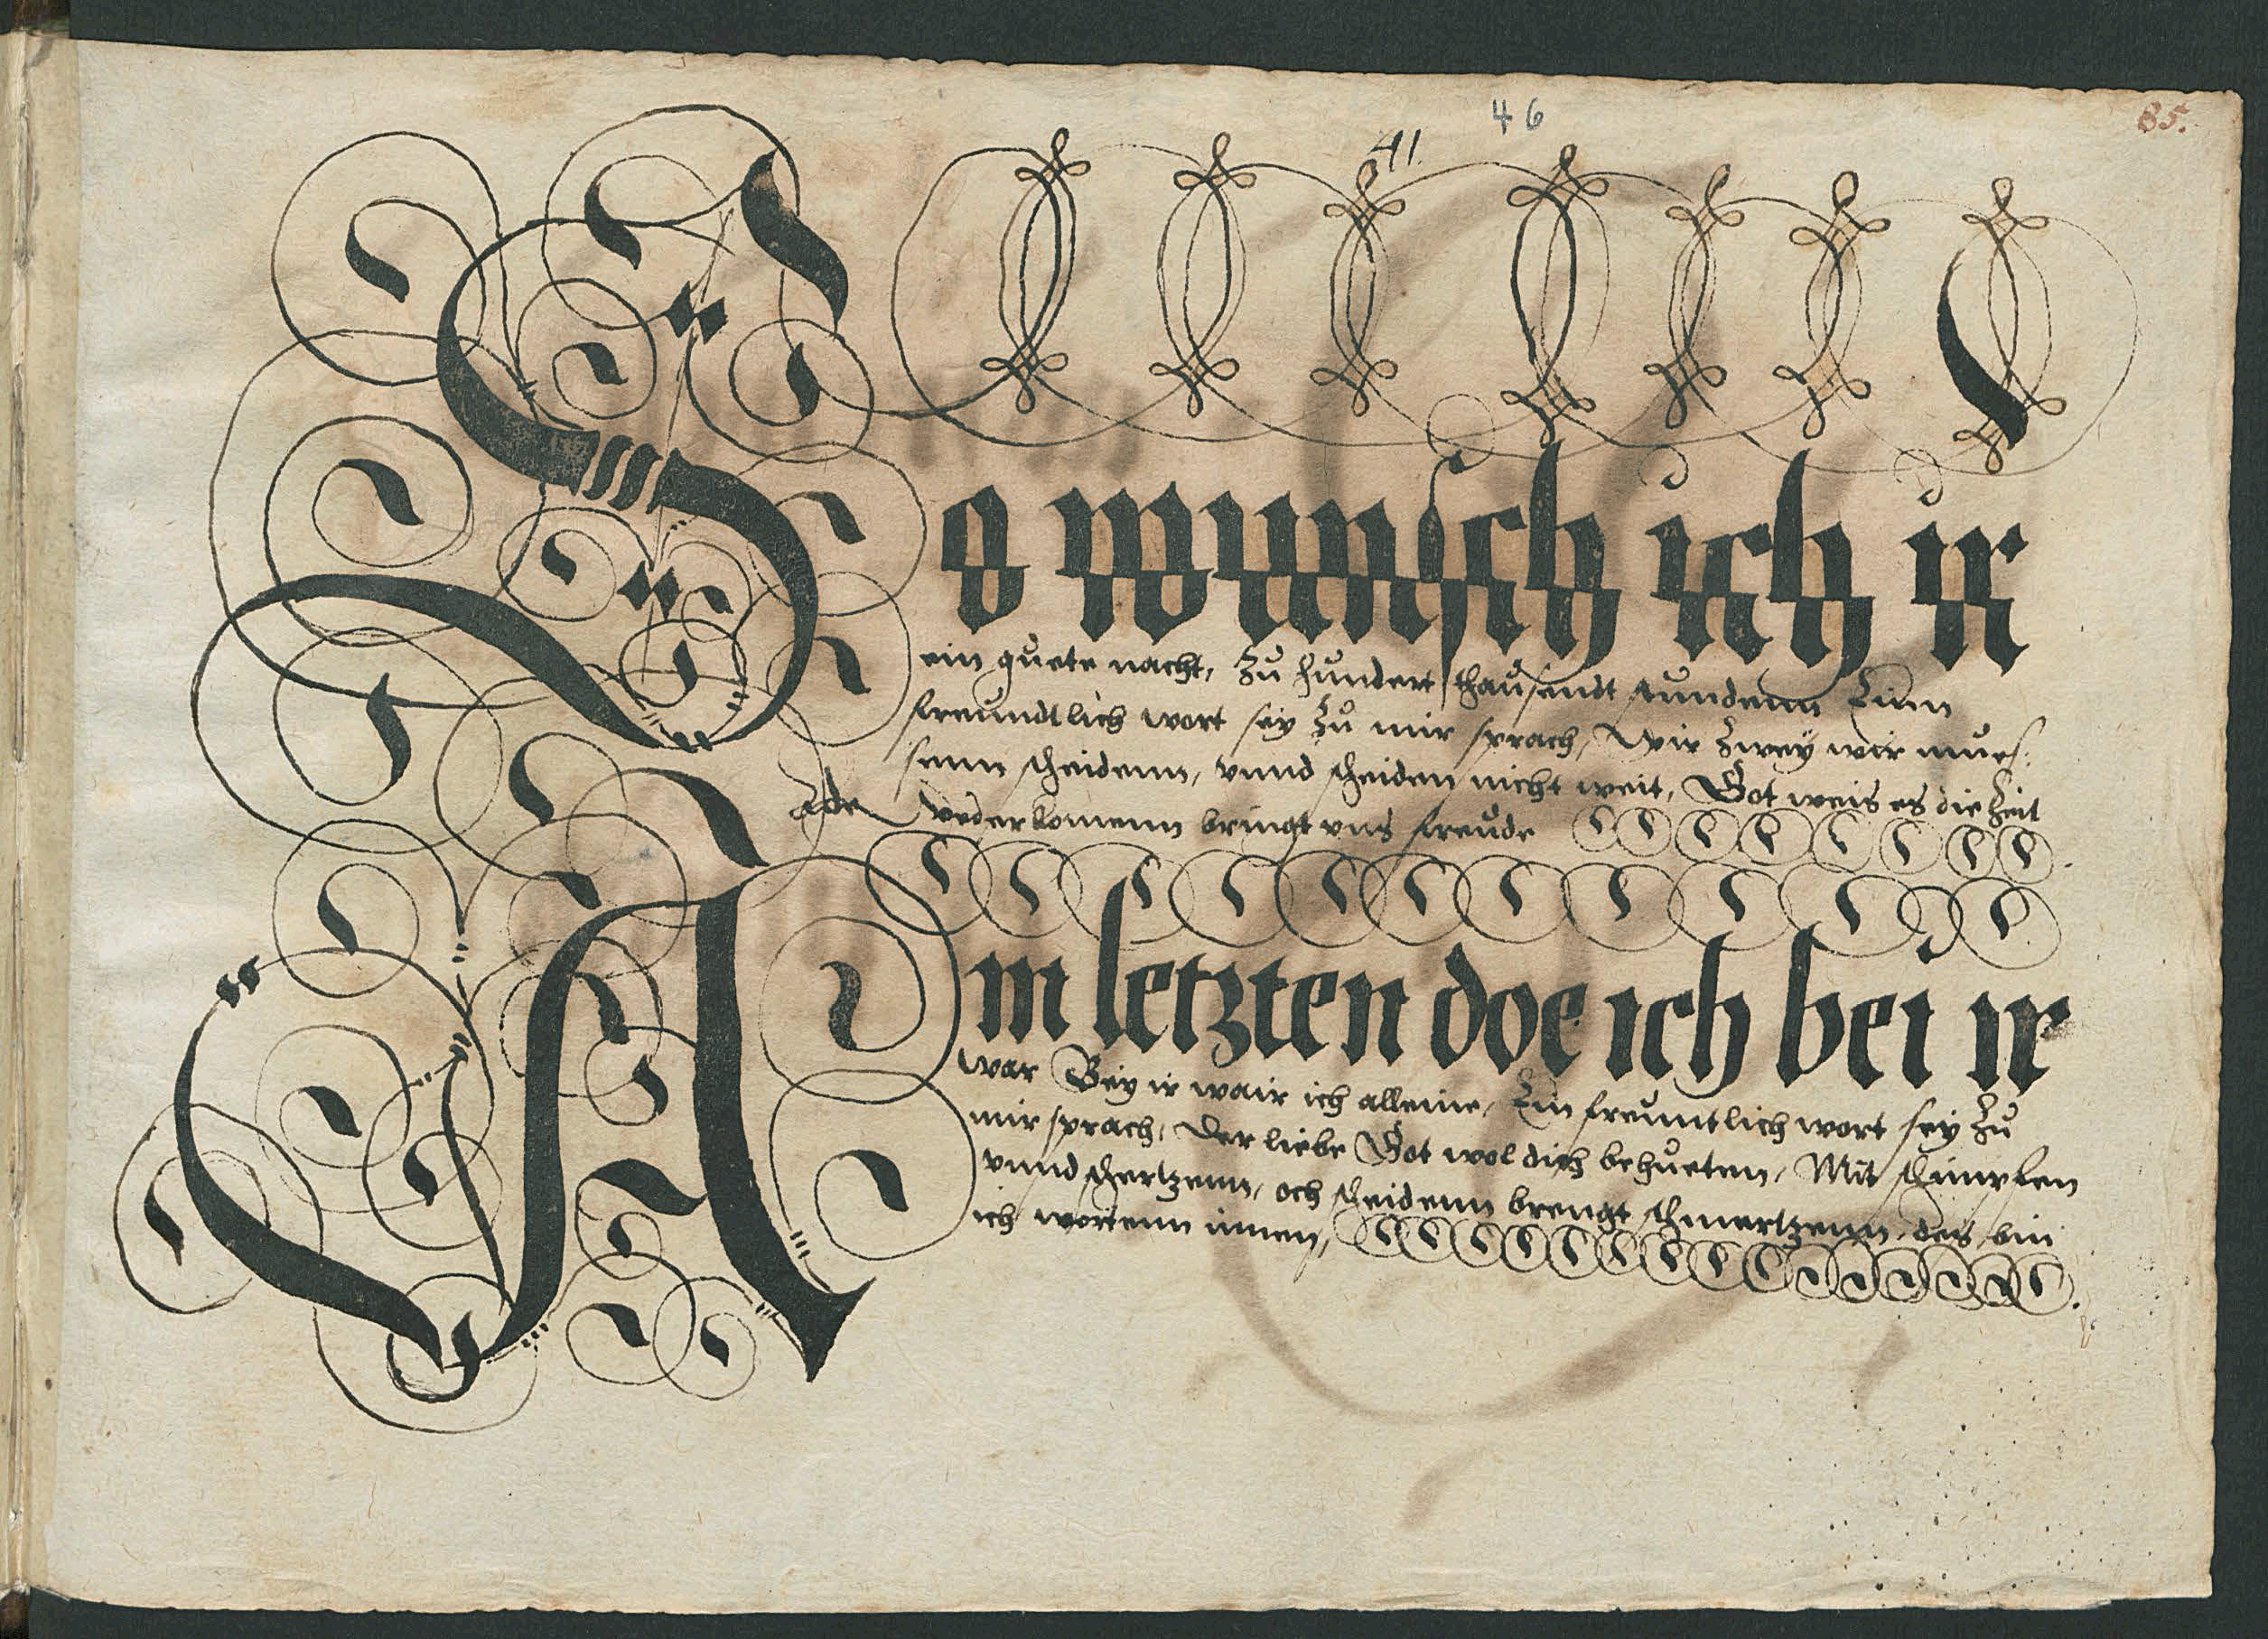 46
41.
85.
So wunsch ich ir
ein guete nacht, Zu hundert thausendt stundenn Einn
freundtlich wort sey Zu mir sprach, Wir Zwey wir mues:
senn scheidenn, vnnd scheiden nicht weit, Got weis es die Zeit
Ade
wederkomenn bringt vns freude
Am letzten doe ich bei ir
war Bey ir wair ich alleine, Ein freuntlich wort sey Zu
mir sprach, Der liebe Got wol dich behueten, Mit schimpfen
vnnd schertzenn, och scheidenn brengt schmertzenn, des bin
ich wordenn innen,